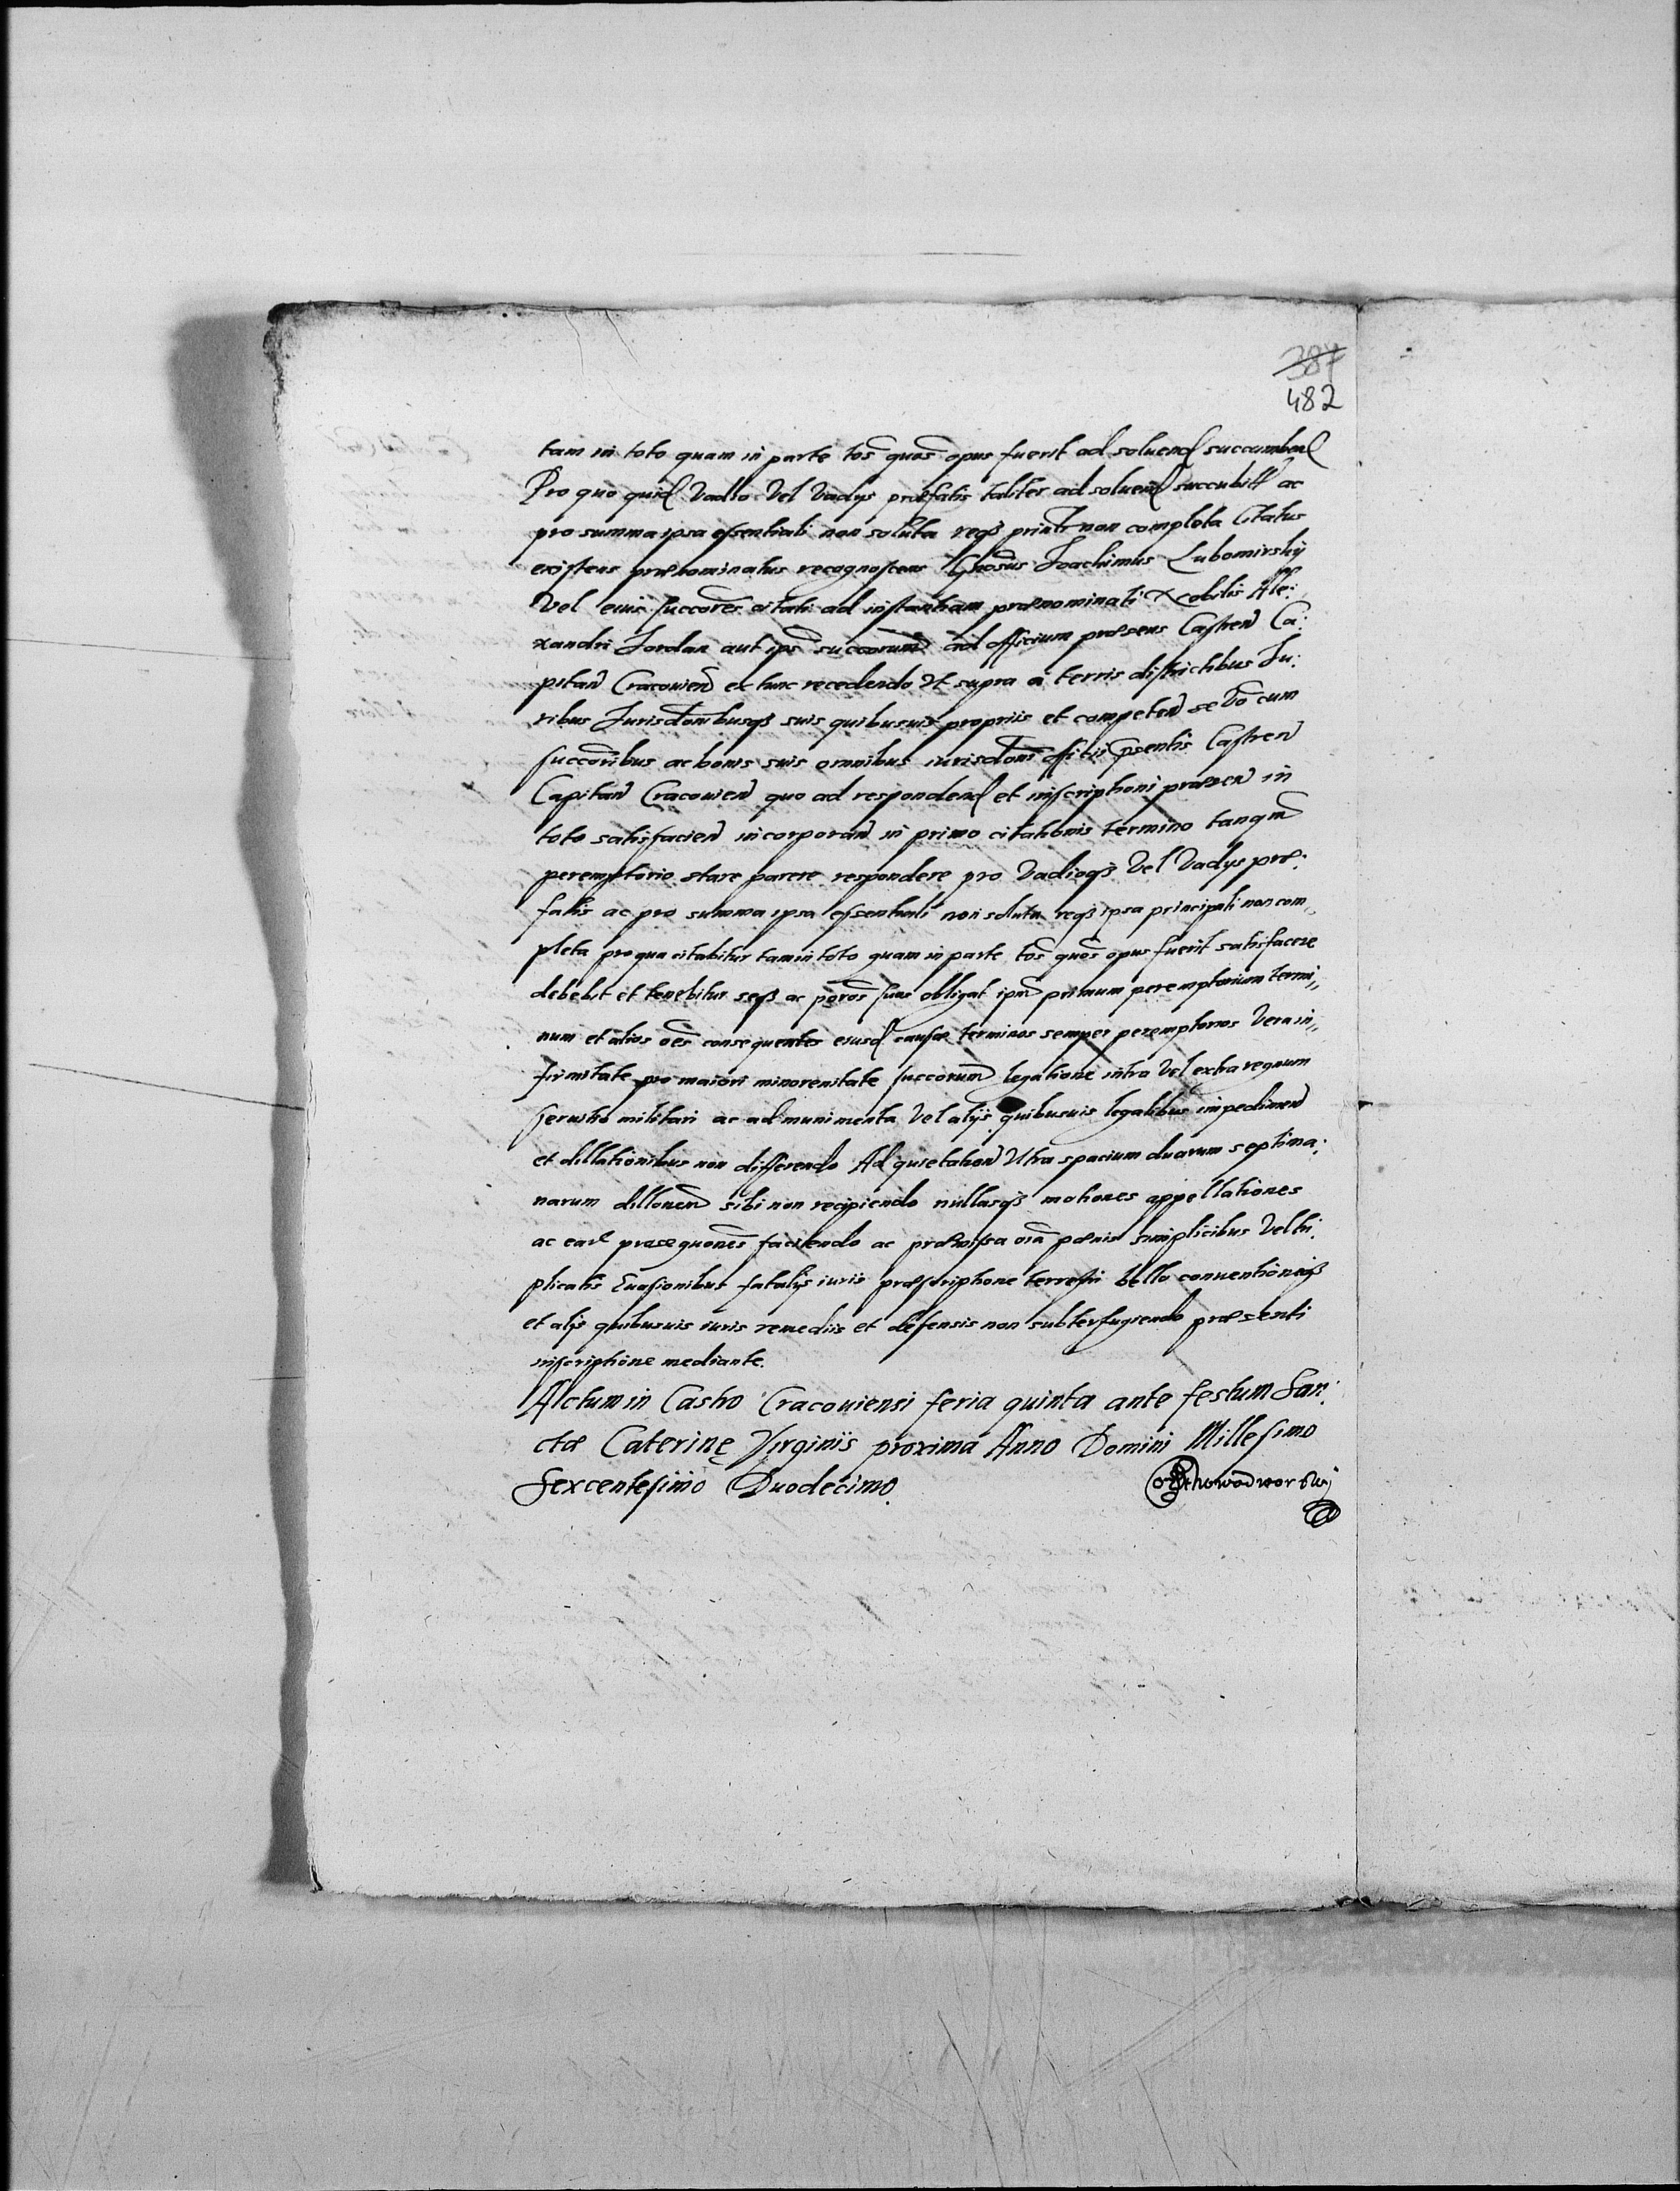 387
482
tam in toto quam in parte tōs quōs opus fuerit ad soluend succumbend
Pro quo quid Vadio Vel Vadys præfatis taliter ad soluend succubitt ac
pro summa ipsa essentiali non soluta reqꝫ printi non completa Citatus
existens prænominatus recognoscens Gnosus Joachimus Lubomirsky
Vel eius succores citati ad instantiam prænominati Nobilis Ale:
xandri Jordan aut ips succorum ad officium præsens Castren Ca:
pitan Cracouien ex tunc recedendo Vt supra a terris districtibus Ju:
ribus Jurisdonibusqꝫ suis quibusuis propriis et competen se Vo cum
succoribus ac bonis suis omnibus iurisdoni officii psentis Castren
Capitan Cracouien quo ad respondend et inscriptioni præsen in
toto satisfacien incorporan in primo citationis termino tanqm
peremptorio stare parere respondere pro Vadioqꝫ Vel Vadys præ:
fatis ac pro summa ipsa essentiali non soluta reqꝫ ipsa principali non com„
pleta pro qua citabitur tam in toto quam in parte tōs quōs opus fuerit satisfacere
debebit et tenebitur seqꝫ ac poros suos obligat ipm primum peremptorium termi„
num et alios oēs consequentes eiusd causæ terminos semper peremptorios Vera in„
firmitate pro maiori minorenitate succorum legatione intra Vel extra regnum
seruitio militari ac ad munimenta Vel alijs quibusuis legalibus impedimen
et dillationibus non differendo Ad quietation Vltra spacium duarum septima:
narum dillonem sibi non recipiendo nullasqꝫ motiones appellationes
ac ear prosequones faciendo ac præmissa oīa pænis simplicibus Vel tri:
plicatis Euasionibus fatalijs iuris præscriptione terrestri bello conuentioneqꝫ
et alijs quibusuis iuris remediis et defensis non subterfugiendo præsenti
inscriptione mediante.
Actum in Castro Cracouiensi feria quinta ante festum San:
ctæ Caterinę Virginis proxima Anno Domini Millesimo
Sexcentesimo Duodecimo.